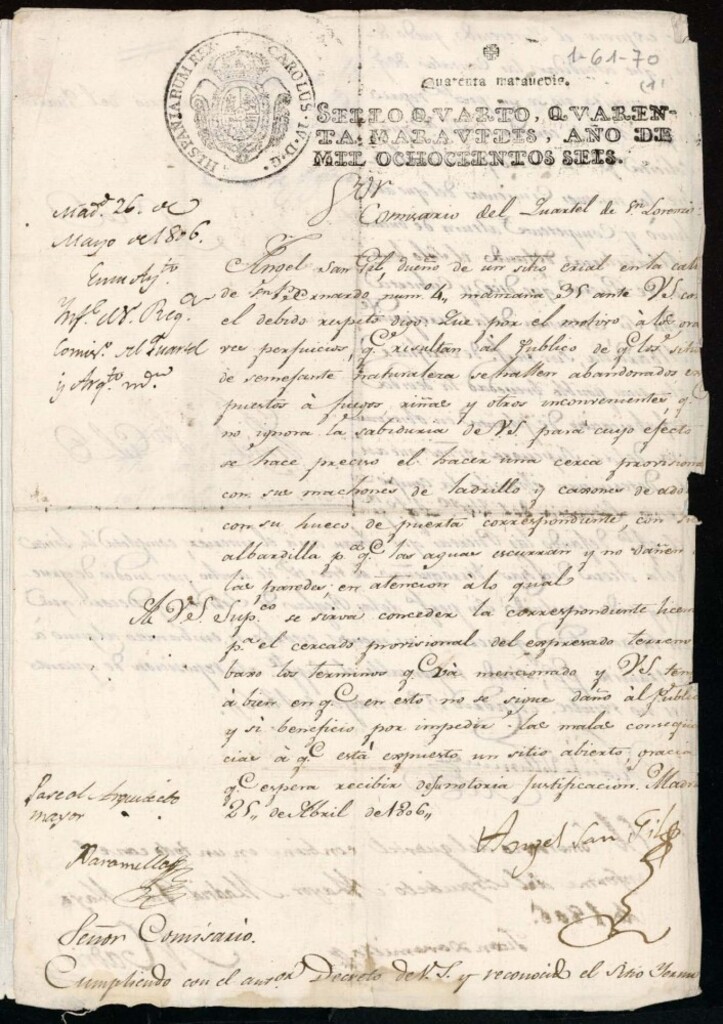 HISPANIARUM REX CAROLUS IV D. G.
1-61-70
(1)
Quarenta maravedis.
SELLO QVARTO, QVAREN-
TA MARAVEDIS, AÑO DE
MIL OCHOCIENTOS SEIS.
Sor
Comisario del Quartel de Sn Lorenzo
Madd 26 de
Mayo de 1806.
Ynfe el Sr Regr
Comiso del Quartel
y Arqto mor
Angel San Gil, dueño de un sitio erial en la calle
de Sn Bernardo num.o 4,, manzana 35 ante VS con
el debido respeto digo: Que por el motivo à los gra
ves perjuicios, qe resultan al Publico de qe los sitios
de semejante naturaleza se hallen abandonados ex
puestos à fuegos riñas y otros inconvenientes, qe
no ignora la sabiduria de VS. para cuyo efecto
se hace preciso el hacer una cerca provisiona
con sus machones de ladrillo y caxones de ado
con su hueco de puerta correspondiente, con su
albardilla pa qe las aguas escurran y no dañen
las paredes; en atencion à lo qual
A VS. Suppco se sirva conceder la correspondiente licen
pa el cercado provisional del expresado terreno
baxo los terminos qe và mencionado y VS. ten
à bien en qe en esto no se sigue daño àl Publi
y si beneficio por impedir las malas consequ
cias à qe està expuesto un sitio abierto, gracia
qe espera recibir de su notoria justificacion. Madri
25,, de Abril de 1806,,
Angel San Gil
Pase al Arquitecto
mayor
Paramella
Señor Comisario.
Cumpliendo con el antor Decreto de V.S. y reconocido el Sitio Yermo